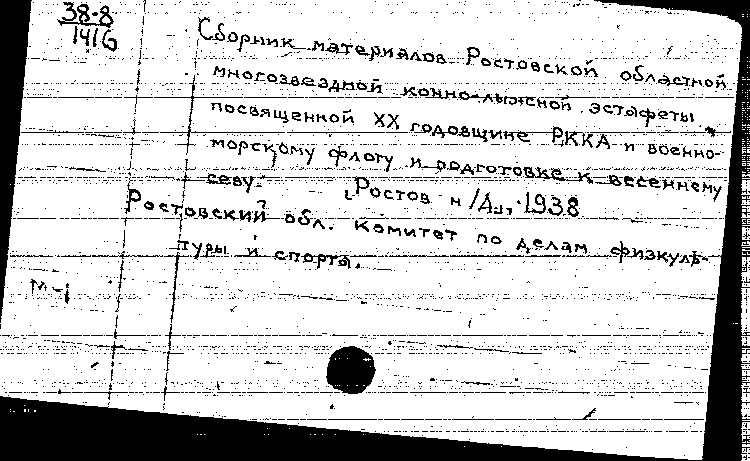 38-8
1416
Сборник материалов Ростовской областной
многозвездной конно-лыжной эстафеты
посвященной XX годовщине РККА и военно-
морскому флоту и подготовке к весеннему
севу. Ростов н/Д., 1938
Ростовский обл. комитет по делам физкуль-
туры и спорта.
м-1